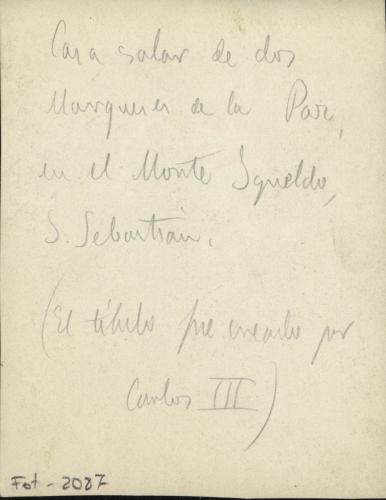 Casa solar de dos
Marqueses de la Paz,
en el Monte Igueldo,
S. Sebastián.
(El título fue creado por
Carlos III)
Fot-2087